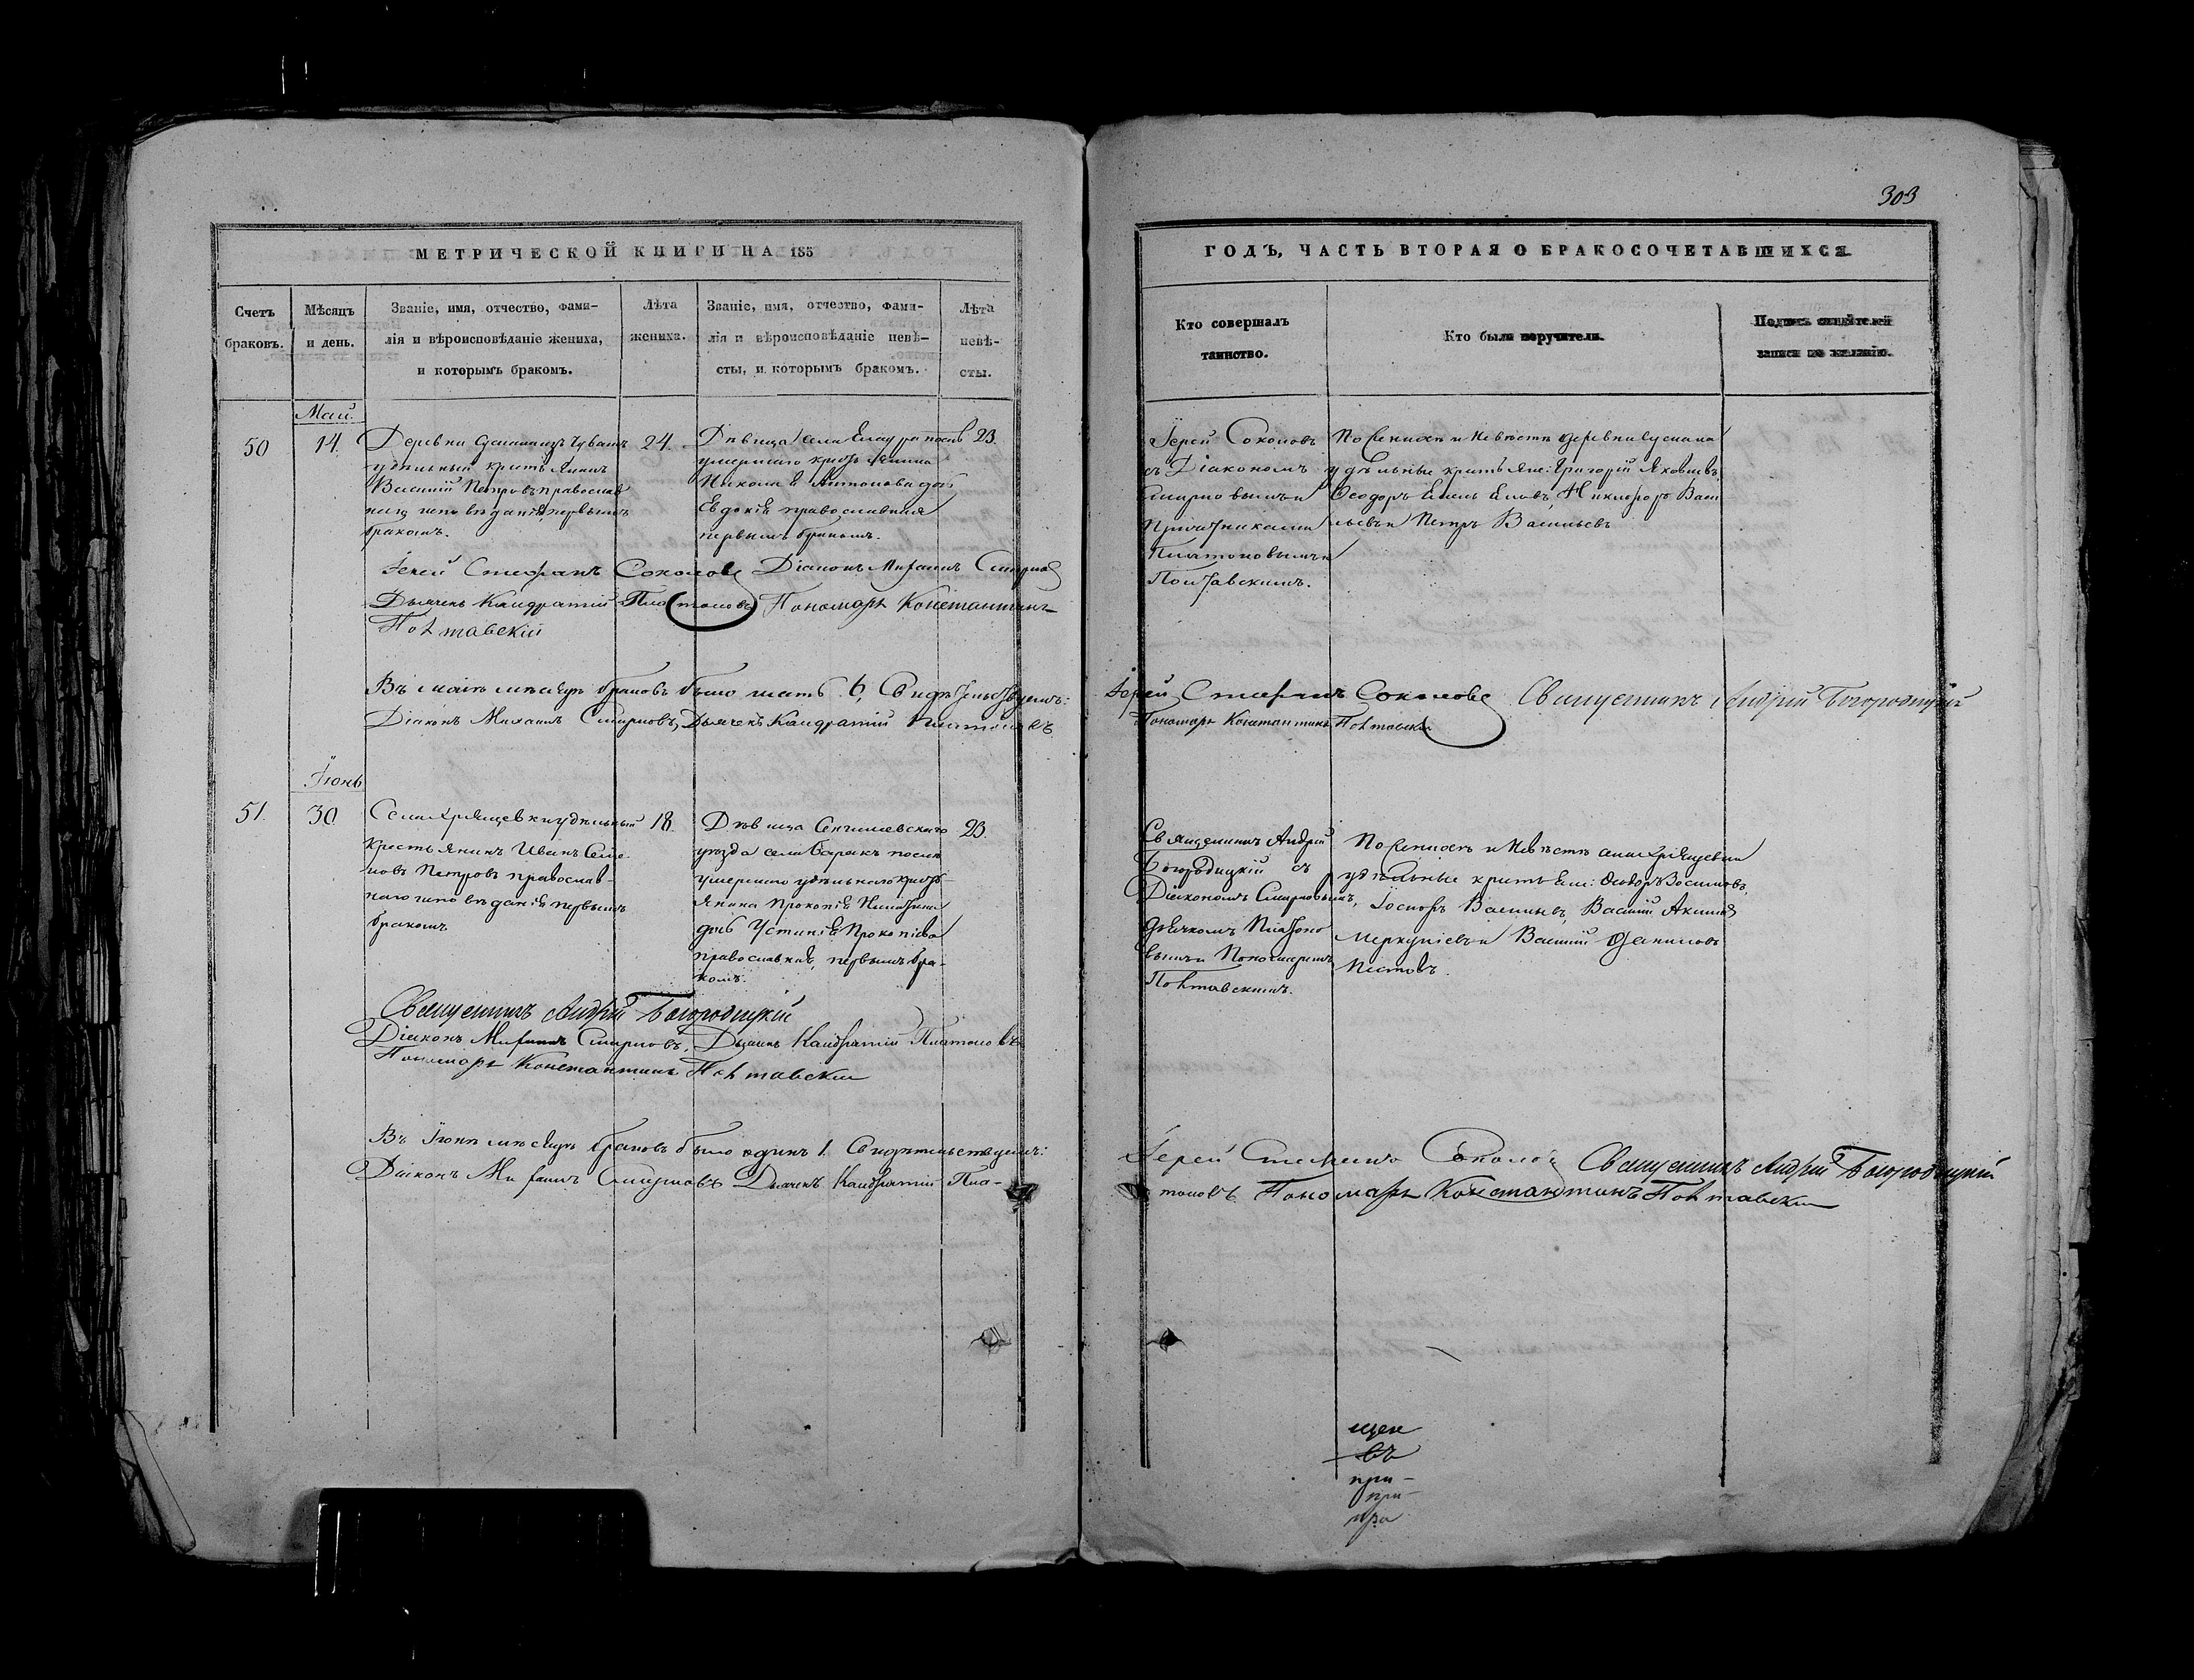 303
МЕТРИЧЕСКОЙ КНИГИ НА 185
ГОДЪ, ЧАСТЬ ВТОРАЯ О БРАКОСОЧЕТАВШИХСЯ.
Счетъ браковъ.
Мѣсяцъ и день.
Званіе, имя, отчество, фами-
лія и вѣроисповѣданіе жениха,
и которымъ бракомъ.
Лѣта
жениха.
Званіе, имя, отчество, фами-
лія и вѣроисповѣданіе невѣ-
сты, и которымъ бракомъ.
Лѣта
невѣ-
сты.
Кто совершалъ
таинство.
Кто были поручители.
Подпись свидѣтелей
записи по желанію.
Май
50
14.
Деревни
удѣльный крестьянинъ
Василій Петровъ православ
наго исповѣданія, первымъ
бракомъ.
24.
Дѣвица села
умершаго кресть янина
Антонова дочь
Евдокія православная
первымъ бракомъ.
23.
Іерей Соколовъ
съ Діакономъ
Смирновымъ и
Причетниками
Платоновымъ и
Полтавскимъ.
По женихѣ и невѣстѣ деревни
удѣльные крестьяне: Григорій Яковлевъ,
Ѳеодоръ Никифоръ Васи
льевъ и Петръ Васильевъ
Іерей Стефанъ Соколовъ Діаконъ Михаилъ Смирновъ
Дьячекъ Кандратій Платоновъ Пономарь Константинъ
Полтавскій
Въ маѣ мѣсяцѣ браковъ было шесть 6, Свидѣтельствуемъ:
Діаконъ Михаилъ Смирновъ, Дьячекъ Кандратій Платоновъ
Іерей Стефанъ Соколовъ Священникъ Андрей Богородицкій
Пономарь Константинъ Полтавскій
Іюнь
51.
30.
Села Хрящевки удѣльный
крестьянинъ Иванъ Семе-
новъ Петровъ православ-
наго исповѣданія первымъ
бракомъ
18.
Дѣвица Сенгилевскаго
уѣзда села
умершаго удѣльнаго кресть
янина Прокопія
дочь Устинія Прокопіева
православная, первымъ бра-
комъ.
23.
Священникъ Андрей
Богородицкій съ
Діакономъ Смирновымъ,
дьячкомъ Плато
вымъ и Пономаремъ
Полтавскимъ.
По женихѣ и невѣстѣ села Хрящевки
удѣльные крестьяне:
Іосифъ Василій
Меркуліевъ и Василій Даниловъ
Священникъ Андрей Богородицкій
Діаконъ Михаилъ Смирновъ, Дьячекъ Кандратій Платоновъ
Пономарь Константинъ Полтавскій
Въ Іюнѣ мѣсяцѣ браковъ было одинъ 1. Свидѣтельствуемъ:
Діаконъ Михаилъ Смирновъ Дьячекъ Кандратій Пла-
Іерей Стефанъ Соколовъ Священникъ Андрей Богородицкій
тоновъ Пономарь Константинъ Полтавскій
щен
въ
при-
при-
пра